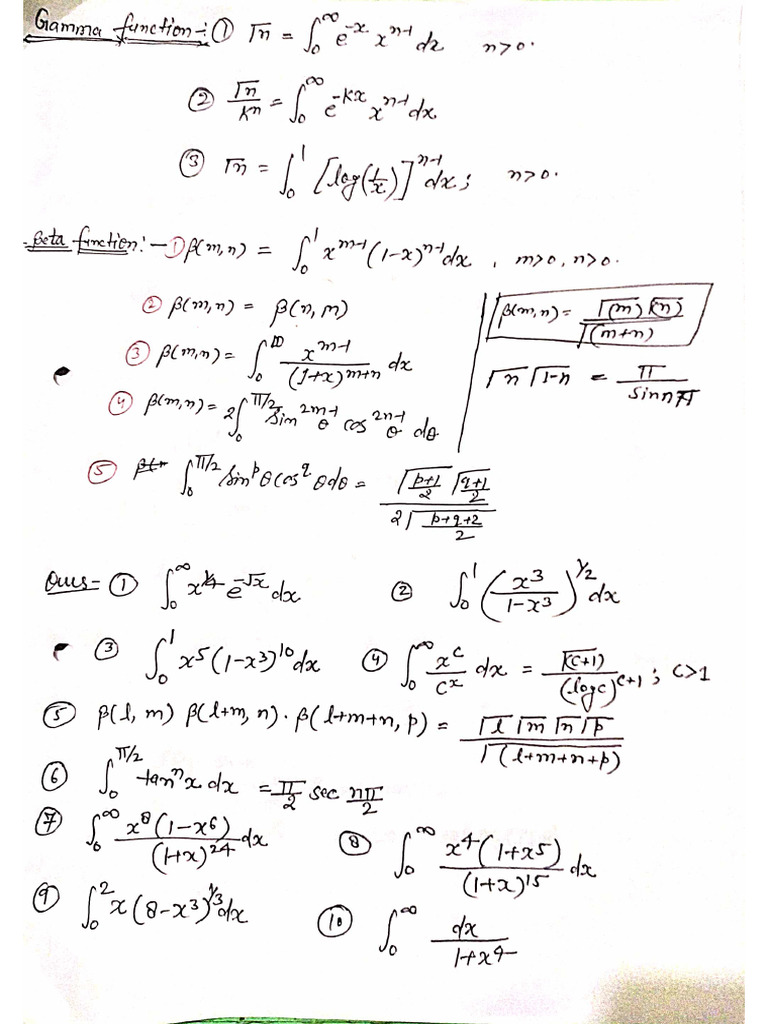 Gamma function:- ① Γn = ∫₀^∞ e^{-x} x^{n-1} dx n>0.
② Γn/k^n = ∫₀^∞ e^{-kx} x^{n-1} dx
③ Γn = ∫₀^1 [log(1/x)]^{n-1} dx; n>0.
Beta function:- ① β(m,n) = ∫₀^1 x^{m-1} (1-x)^{n-1} dx, m>0, n>0.
② β(m,n) = β(n,m)
β(m,n) = Γ(m) Γ(n) / Γ(m+n)
③ β(m,n) = ∫₀^∞ x^{m-1} / (1+x)^{m+n} dx
Γn Γ1-n = π / sin nπ
④ β(m,n) = 2∫₀^{π/2} sin^{2m-1}θ cos^{2n-1}θ dθ
⑤ ∫₀^{π/2} sin^pθ cos^qθ dθ = Γ(p+1)/2 Γ(q+1)/2 / 2Γ(p+q+2)/2
Ques- ① ∫₀^∞ x^{1/4} e^{-√x} dx ② ∫₀^1 (x³/(1-x³))^{1/2} dx
③ ∫₀^1 x⁵(1-x³)^{10} dx ④ ∫₀^∞ x^c/c^x dx = Γ(c+1)/(log c)^{c+1}; c>1
⑤ β(l,m) β(l+m,n). β(l+m+n,p) = Γl Γm Γn Γp / Γ(l+m+n+p)
⑥ ∫₀^{π/2} tan^n x dx = π/2 sec nπ/2
⑦ ∫₀^∞ x⁸(1-x⁶)/(1+x)^{24} dx ⑧ ∫₀^∞ x⁴(1+x⁵)/(1+x)^{15} dx
⑨ ∫₀^2 x(8-x³)^{1/3} dx ⑩ ∫₀^∞ dx/(1+x⁴)